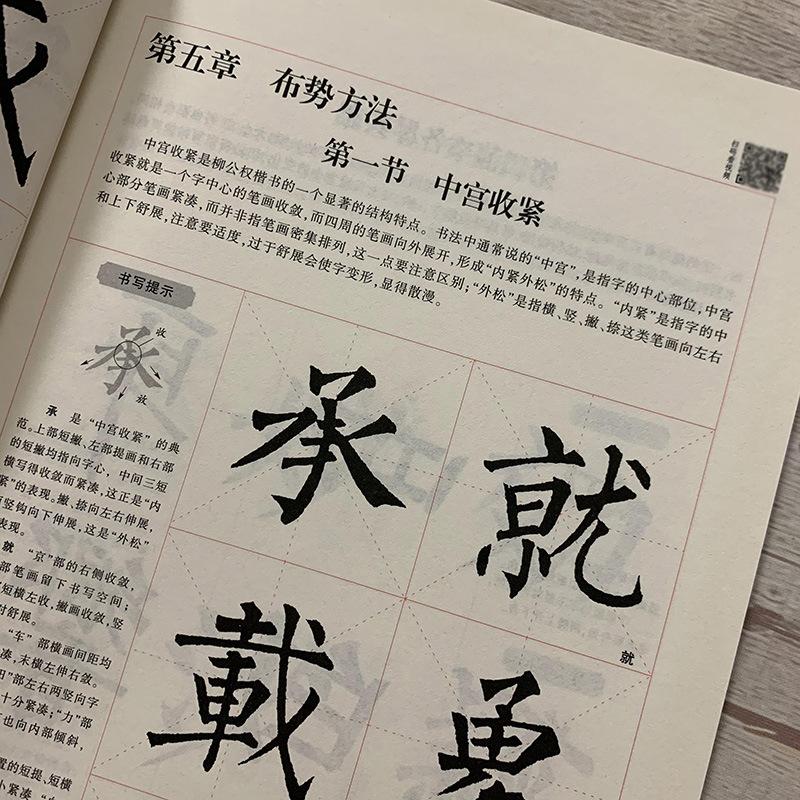 第五章 布势方法
扫码看视频
第一节 中宫收紧
中宫收紧是柳公权楷书的一个显著的结构特点。书法中通常说的“中宫”,是指字的中心部位,中宫
收紧就是一个字中心的笔画收敛,而四周的笔画向外展开,形成“内紧外松”的特点。“内紧”是指字的中
心部分笔画紧凑,而并非指笔画密集排列,这一点要注意区别;“外松”是指横、竖、撇、捺这类笔画向左右
和上下舒展,注意要适度,过于舒展会使字变形,显得散漫。
书写提示
承
收
放
承 是“中宫收紧”的典
范。上部短撇、左部提画和右部
的短撇均指向字心,中间三短
横写得收敛而紧凑,这正是“内
紧”的表现。撇、捺向左右伸展,
竖钩向下伸展,这是“外松”
表现。
就 “京”部的右侧收敛,
部笔画留下书写空间;
短横左收,撇画收敛,竖
对舒展。
“车”部横画间距均
凑,末横左伸右敛。
部左右两竖向字
十分紧凑;“力”部
也向内部倾斜,
置的短提、短横
小紧凑。
承
就
就
載
勇